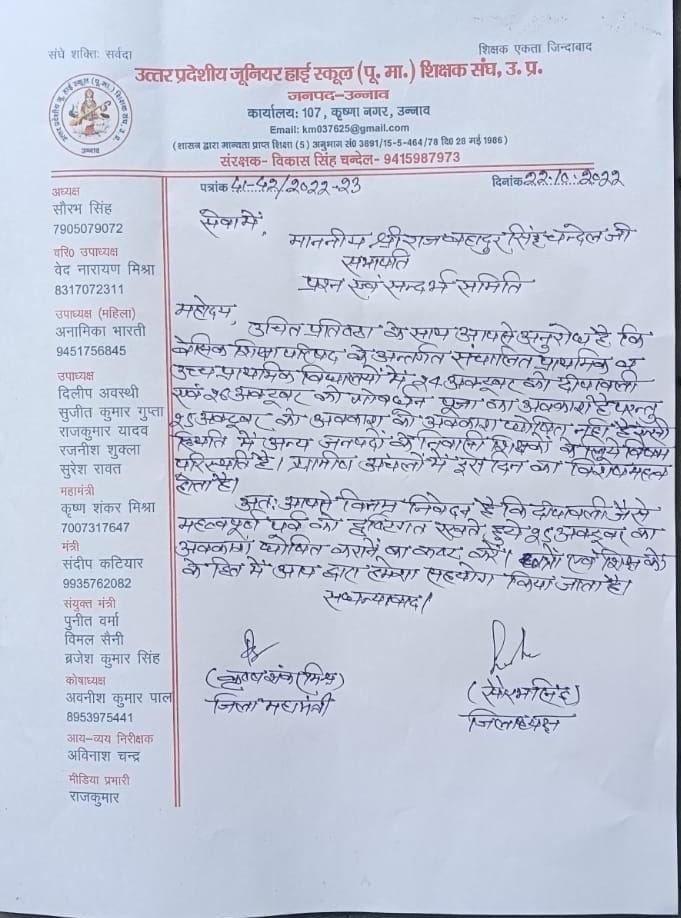 संघे शक्तिः सर्वदा
शिक्षक एकता जिन्दाबाद
उत्तर प्रदेशीय जूनियर हाई स्कूल (पू. मा.) शिक्षक संघ, उ. प्र.
जनपद-उन्नाव
कार्यालय: 107, कृष्णा नगर, उन्नाव
Email: km037625@gmail.com
(शासन द्वारा मान्यता प्राप्त शिक्षा (5) अनुभाग सं0 3891/15-5-464/78 दि0 28 मई 1986)
संरक्षक- विकास सिंह चन्देल- 9415987973
पत्रांक 41-42/2022-23
दिनांक 22.10.2022
अध्यक्ष
सौरभ सिंह
7905079072
वरि0 उपाध्यक्ष
वेद नारायण मिश्रा
8317072311
उपाध्यक्ष (महिला)
अनामिका भारती
9451756845
उपाध्यक्ष
दिलीप अवस्थी
सुजीत कुमार गुप्ता
राजकुमार यादव
रजनीश शुक्ला
सुरेश रावत
महामंत्री
कृष्ण शंकर मिश्रा
7007317647
मंत्री
संदीप कटियार
9935762082
संयुक्त मंत्री
पुनीत वर्मा
विमल सैनी
ब्रजेश कुमार सिंह
कोषाध्यक्ष
अवनीश कुमार पाल
8953975441
आय-व्यय निरीक्षक
अविनाश चन्द्र
मीडिया प्रभारी
राजकुमार
सेवा में,
माननीय श्री राज बहादुर सिंह चन्देल जी
सभापति
प्रश्न एवं सन्दर्भ समिति
महोदय,
उचित प्रतिष्ठा के साथ आपसे अनुरोध है कि
बेसिक शिक्षा परिषद के अन्तर्गत संचालित प्राथमिक व
उच्च प्राथमिक विद्यालयों में 24 अक्टूबर को दीपावली
एवं 26 अक्टूबर को गोवर्धन पूजा का अवकाश है परन्तु
25 अक्टूबर को अवकाश को अवकाश घोषित नहीं है ऐसी
स्थिति में अन्य जनपदों के निवासी शिक्षकों के लिये विषम
परिस्थिति है। ग्रामीण अंचलों में इस दिन का विशेष महत्व
होता है।
अतः आपसे विनम्र निवेदन है कि दीपावली जैसे
महत्वपूर्ण पर्व को दृष्टिगत रखते हुये 25 अक्टूबर का
अवकाश घोषित कराने का कष्ट करें। छात्रों एवं शिक्षकों
के हित में आप द्वारा हमेशा सहयोग किया जाता है।
सधन्यवाद।
(कृष्ण शंकर मिश्र)
जिला महामंत्री
(सौरभ सिंह)
जिलाध्यक्ष